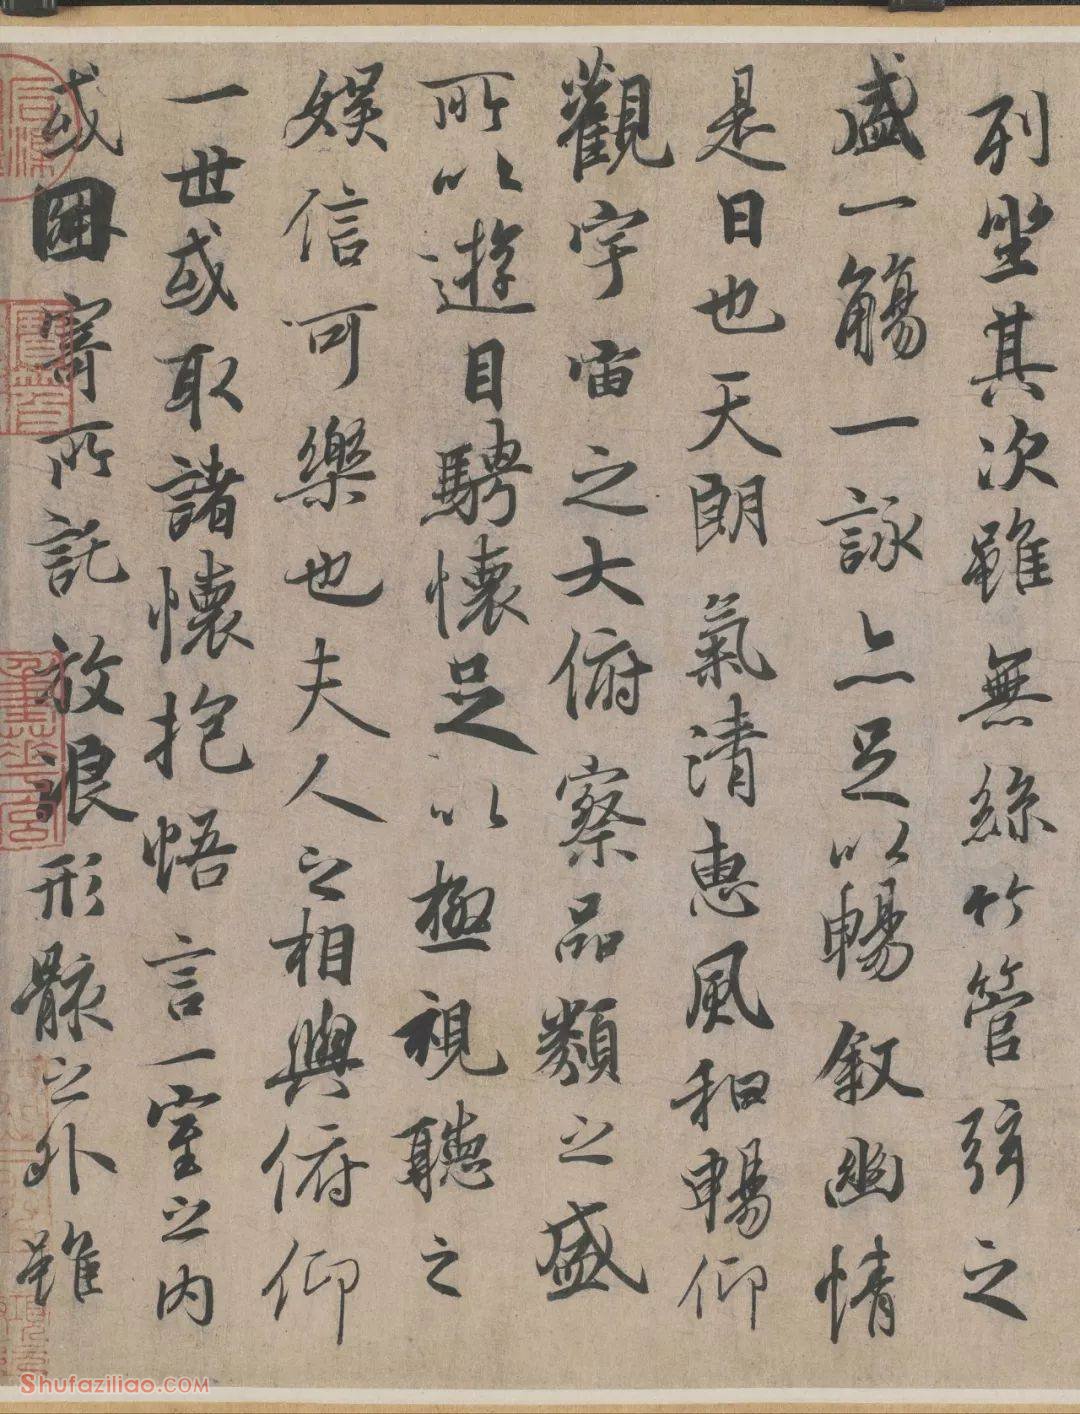 列坐其次雖無絲竹管弦之
盛一觴一詠亦足以暢叙幽情
是日也天朗氣清惠風和暢仰
觀宇宙之大俯察品類之盛
所以遊目騁懷足以極視聽之
娛信可樂也夫人之相與俯仰
一世或取諸懷抱悟言一室之內
或因寄所託放浪形骸之外雖
Shufaziliao.COM